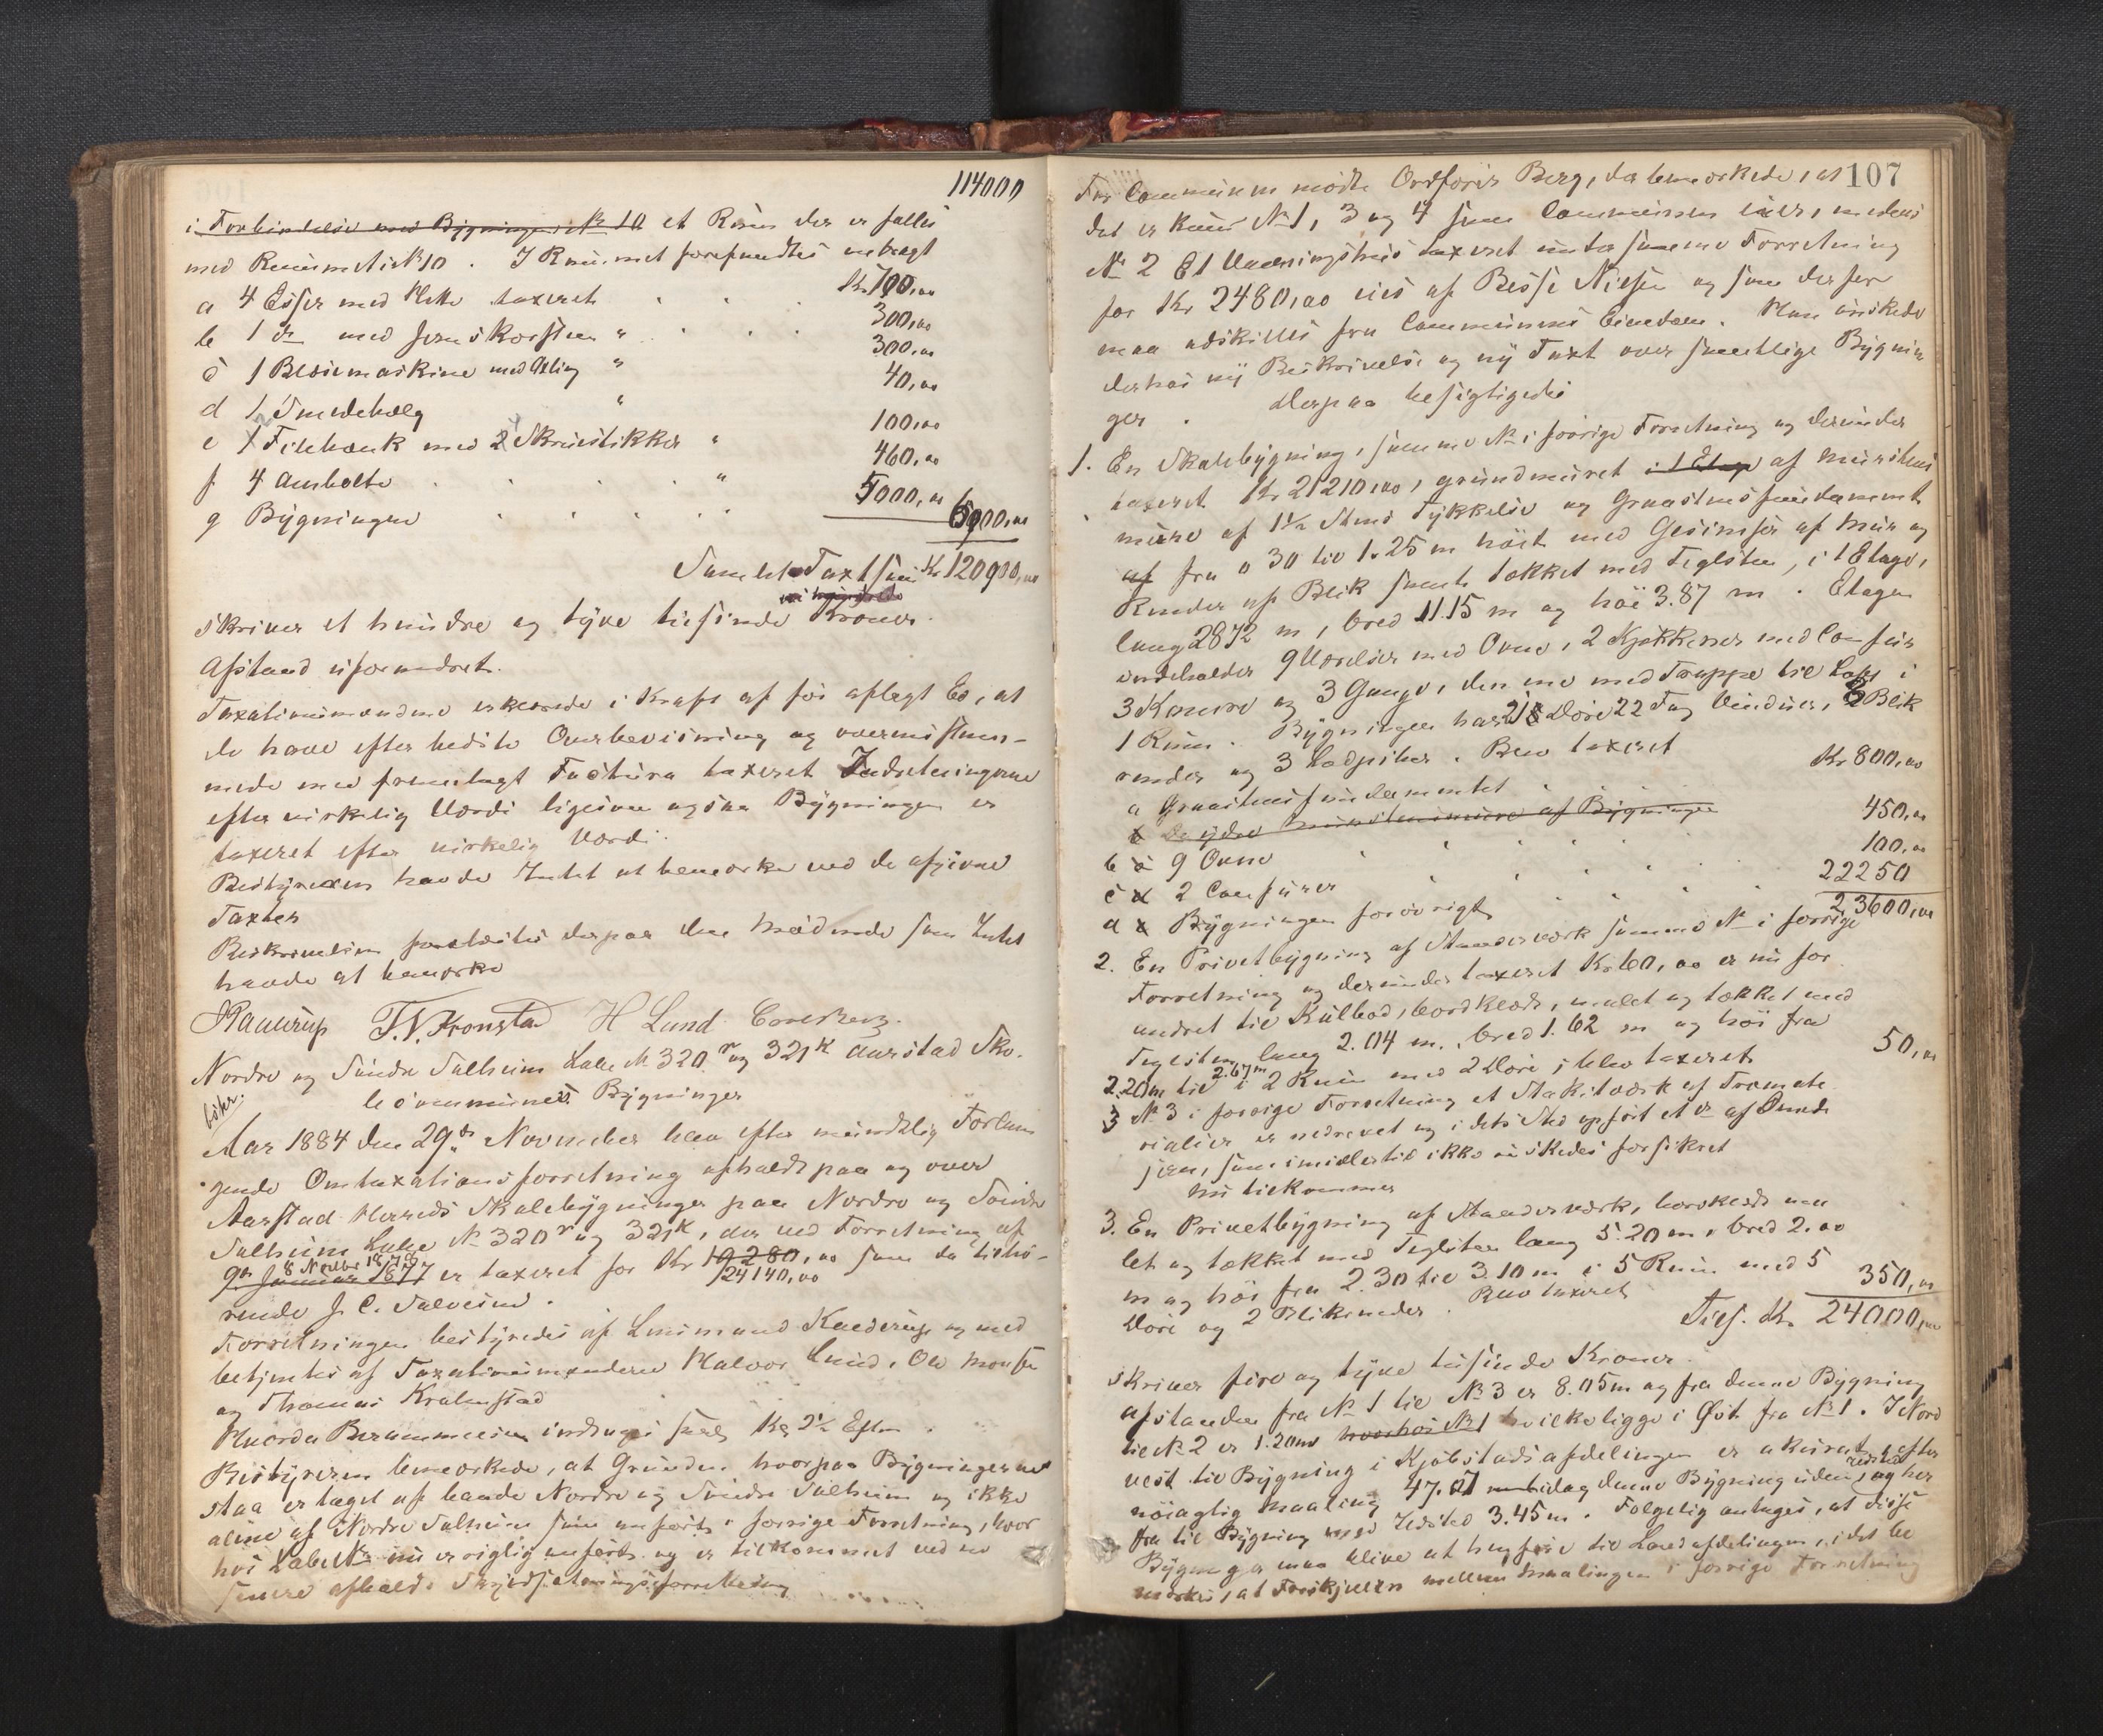 114000
i Forbindelse med Bygningen № 10 et Rum der er fælles
med Rummet i № 10. I Rummet forefandtes anbragt
a 4 Esser med Hette taxeret Kr 700,00
b 1 do med Jernskorsten " 300,00
c 1 Blæsemaskine med Axling " 300,00
d 1 Smedebælg " 40,00
e 1 Filebænk med 2 Skruestikker " 100,00
f 4 Ambolte " 460,00
g Bygningen 5000,00
6900,00
Samlet Taxtsum Kr 120900,00
skriver et hundre og tyve tusinde Kroner.
Afstand uforandret.
Taxationsmændene erklærede i Kraft af før aflagt Ed, at
de have efter bedste Overbevisning og overensstem-
mede med fremlagt Factura taxeret Indretningerne
efter virkelig Værdi ligesom ogsaa Bygningen er
taxeret efter virkelig Værdi.
Bestyreren havde Intet at bemærke ved de afgivne
Taxter
Beskrivelsen forelæstes derpaa den Mødende som Intet
havde at bemærke
Kaurup T. V. Kronstad H Lund
Nordre og Søndre Solheim Labe № 320 r og 321 k Aarstad Sko-
lecommunes Bygninger
Aar 1884 den 29de November blev efter mundtlig Forlan-
gende Omtaxationsforretning afholdt paa og over
Aarstad Herreds Skolebygninger paa Nordre og Søndre
Solheim Labe № 320 r og 321 k, der ved Forretning af
8 Novbr 1878
9de Januar 1877 er taxeret for Kr 19280,00 som da tilhø-
24140,00
rende J. C. Salvesen.
Forretningen bestyredes af Lensmand Kaurup og med
betjentes af Taxationsmændene Halvor Lund, Ole Monsen
og Thomas Krohnstad
Hvorda Berammelsen indtages Kl 2½ Efm.
Bestyreren bemærkede, at Grunden hvorpaa Bygningerne
staa er taget af baade Nordre og Søndre Solheim og ikke
alene af Nordre Solheim som anført i forrige Forretning, hvor
hos Labe № nu er rigtig anført og er tilkommet ved en
senere afholdt Skyldsætningsforretning
107
For Communen mødte Ordfører Berg, der bemærkede, at
det er kun № 1, 3 og 4 som Communen eier, medens
№ 2 Et Vaaningshus taxeret under samme Forretning
for Kr 2480,00 eies af Besse Nielsen og som derfor
maa udskilles fra Communens Eiendom. Han ønskede
derhos ny Beskrivelse og ny Taxt over samtlige Bygnin
ger. Derpaa besigtigedes
1. En Skolebygning, samme № i forrige Forretning og derunder
taxeret Kr 21210,00, grundmuret i 1 Etage af Murstens
mure af 1½ Stens Tykkelse og Graastensfundament
af fra 0 30 til 1.25 m høit med Gesimser af Mur og
Render af Blik samt tækket med Teglsten, i 1 Etage,
lang 28 72 m, bred 11.15 m og høi 3.87 m. Etagen
indeholder 9 Værelser med Ovne, 2 Kjøkkener med Comfur
3 Kamre og 3 Gange, den ene med Trappe til Loft i
1 Rum. Bygningen har 21 Døre 22 Fag Vinduer, 2 Blik
render og 3 Lodpiber. Blev taxeret
a Graastensfundamentet Kr 800,00
b De ydre Murstensmure af Bygningen
b c 9 Ovne 450,00
c d 2 Comfurer 100,00
d e Bygningen forøvrigt 22250
23600,00
2. En Privetbygning af Standerværk samme № i forrige
Forretning og derunder taxeret Kr 60,00 er nu for
andret til Kulbod, bordklædt, malet og tækket med
Teglsten, lang 2.04 m. bred 1.62 m og høi fra
2.20 m til 2.67 m i 2 Rum med 2 Døre, blev taxeret 50,00
3 № 3 i forrige Forretning et Stakitværk af Træmate-
rialier er nedrevet og i dets Sted opført et do af Bund
jern, som imidlertid ikke ønskedes forsikret
Nu tilkommer
3. En Privetbygning af Standerværk, bordklædt ma
let og tækket med Teglsten lang 5.20 m, bred 2.00
m og høi fra 2.30 til 3.10 m i 5 Rum med 5
Døre og 2 Blikrender. Blev taxeret 350,00
Tils. Kr. 24000,00
skriver fire og tyve tusinde Kroner.
Afstanden fra № 1 til № 3 er 8.05 m og fra denne Bygning
til № 2 er 1.20 m hvorhos № 1 hvilke ligge i Øst fra № 1. I Nord
vest til Bygning i Kjøbstadsafdelingen er akurat efter
nøiagtig Maaling 47.01 m idag denne Bygning uden og her
fra til Bygning med Ildsted 3.45 m. Følgelig antages, at disse
Bygninger maa blive at henføre til Landafdelingen, idet be
mærkes, at Forskjellen mellem Maalingen i forrige Forretning